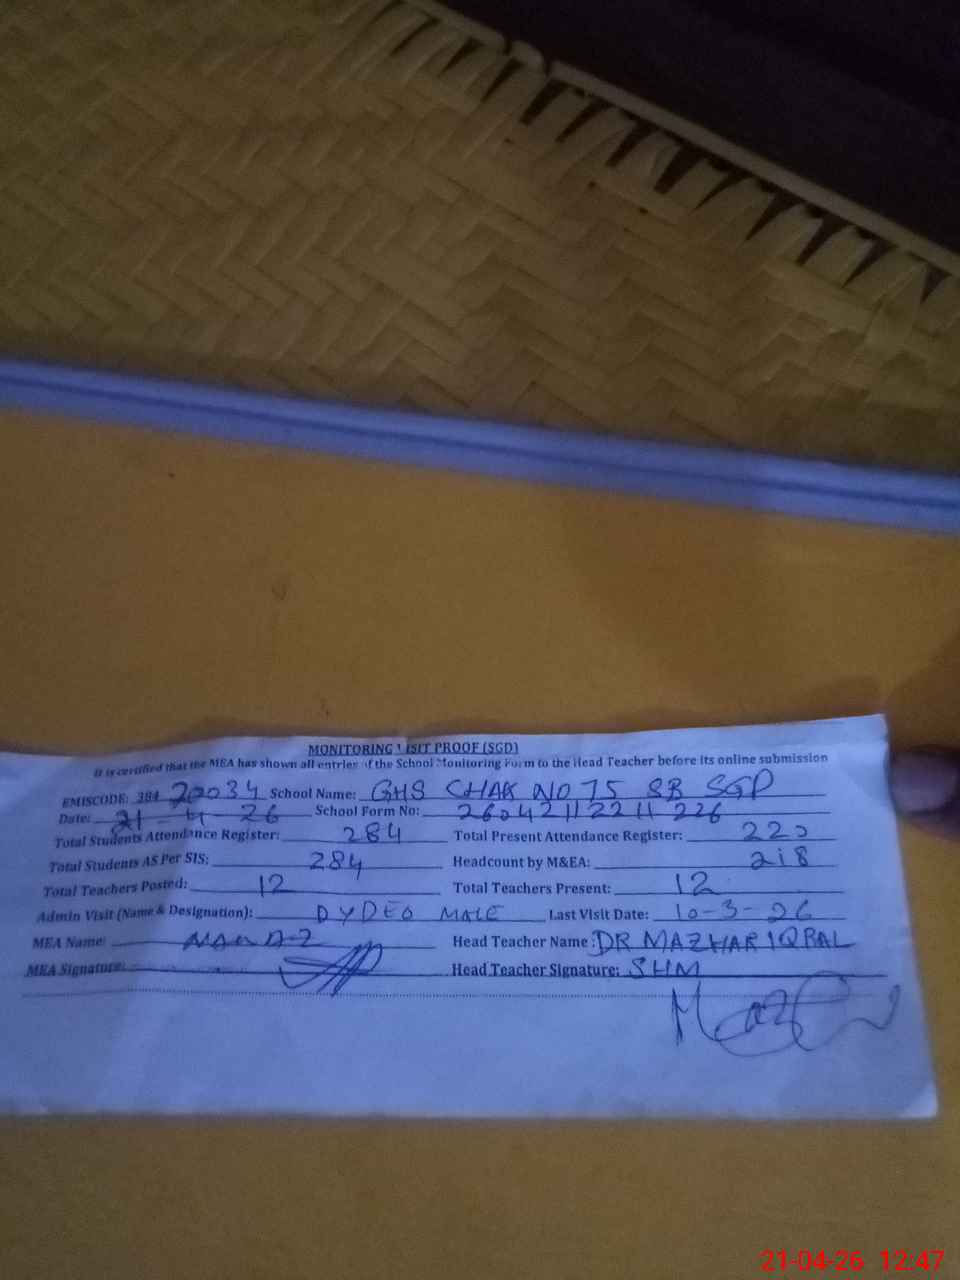 MONITORING VISIT PROOF (SGD)
It is certified that the MEA has shown all entries of the School Monitoring Form to the Head Teacher before its online submission
EMISCODE: 384 20034 School Name: GHS CHAK NO 75 SB SGD
Date: 21-4-26 School Form No: 26042112211226
Total Students Attendance Register: 284 Total Present Attendance Register: 220
Total Students AS Per SIS: 284 Headcount by M&EA: 218
Total Teachers Posted: 12 Total Teachers Present: 12
Admin Visit (Name & Designation): DYDEO MALE Last Visit Date: 10-3-26
MEA Name: Head Teacher Name: DR MAZHAR IQBAL
MEA Signature: Head Teacher Signature: SHM
21-04-26 12:47